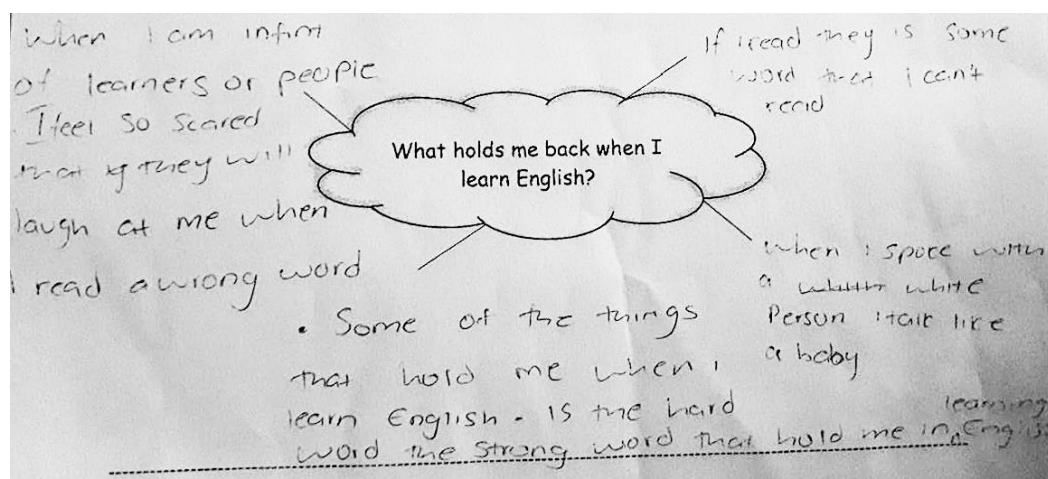 When I am infirnt
of learners or people
I feel so scared
that if they will
laugh at me when
I read a wrong word
What holds me back when I
learn English?
If i read they is some
word that i can't
read
When i spoce with
a white
Person i talk like
a baby
• Some of the things
that hold me when i
learn English. Is the hard
word the strong word that hold me in learning English